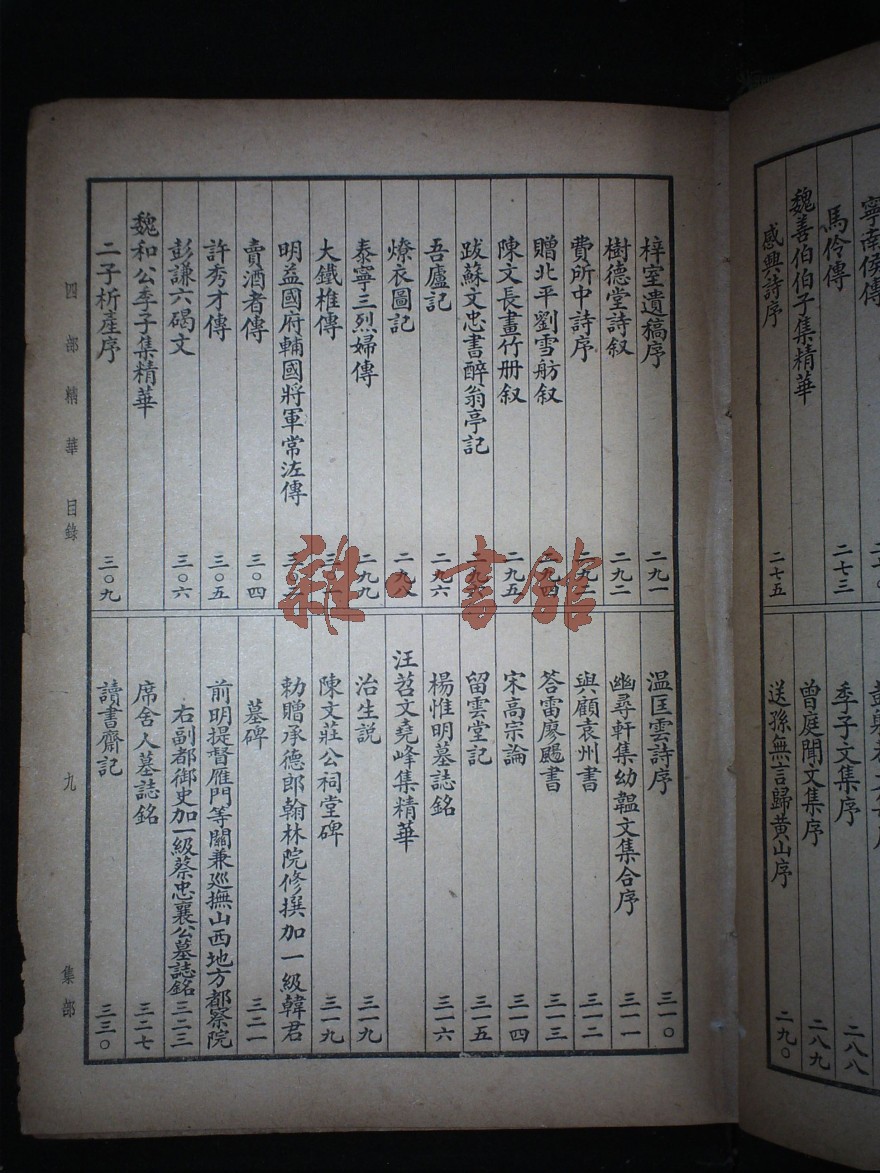 寧南侯傳
馬伶傳 二七三
魏善伯伯子集精華
感興詩序 二七五
季子文集序 二八八
曾庭聞文集序 二八九
送孫無言歸黃山序 二九〇
梓室遺稿序 二九一
樹德堂詩叙 二九二
費所中詩序
贈北平劉雪舫叙 二九四
陳文長畫竹册叙 二九五
跋蘇文忠書醉翁亭記
吾廬記 二九六
燎衣圖記 二九八
泰寧三烈婦傳 二九九
大鐵椎傳
明益國府輔國將軍常㳓傳
賣酒者傳 三〇四
許秀才傳 三〇五
彭謙六碣文 三〇六
魏和公季子集精華
二子析產序 三〇九
温匡雲詩序 三一〇
幽尋軒集幼韞文集合序 三一一
與顧袁州書 三一二
答雷廖颺書 三一三
宋高宗論 三一四
留雲堂記 三一五
楊惟明墓誌銘 三一六
汪苕文堯峰集精華
治生說 三一九
陳文莊公祠堂碑 三一九
勅贈承德郎翰林院修撰加一級韓君
墓碑 三二一
前明提督雁門等關兼巡撫山西地方都察院
右副都御史加一級蔡忠襄公墓誌銘 三二三
席舍人墓誌銘 三二七
讀書齋記 三三〇
四部精華 目錄 九 集部
雜·書館